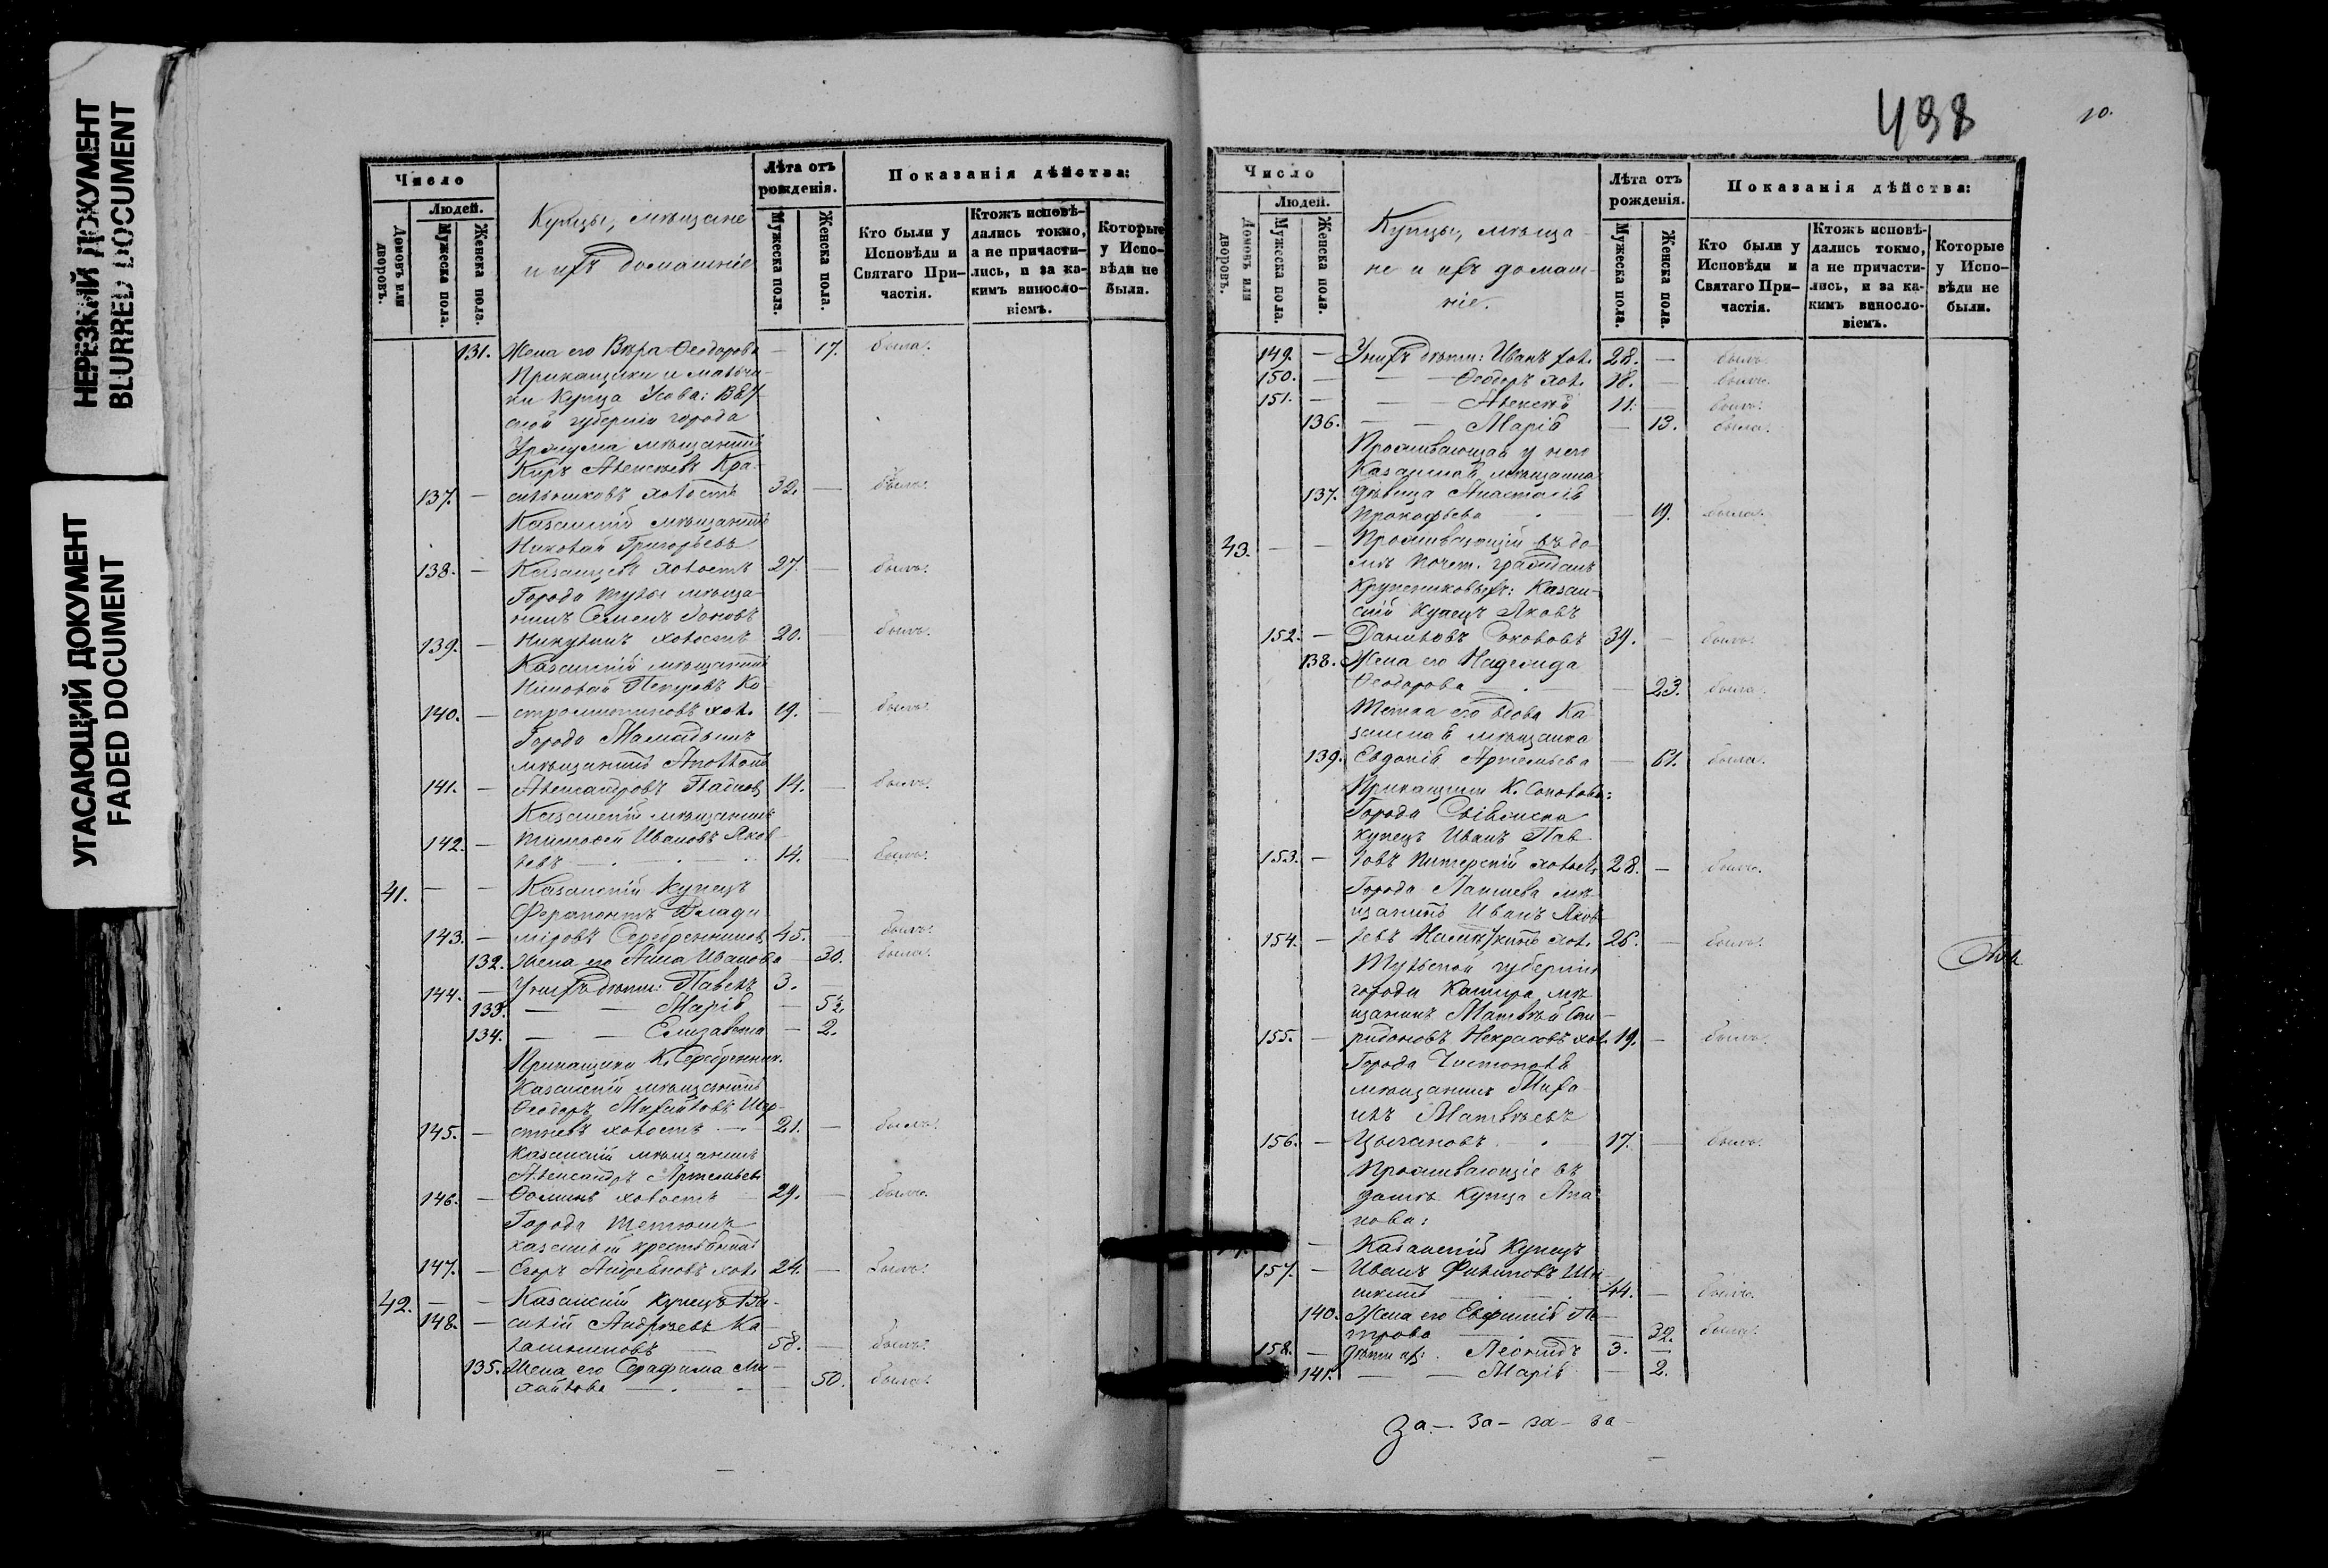 НЕРЕЗКИЙ ДОКУМЕНТ
BLURRED DOCUMENT
УГАСАЮЩИЙ ДОКУМЕНТ
FADED DOCUMENT
Число
Людей.
Домовъ или дворовъ.
Мужеска пола.
Женска пола.
Купцы, мѣщане
и ихъ домашніе
Лѣта отъ рожденія.
Мужеска пола.
Женска пола.
Показанія дѣйства:
Кто были у Исповѣди и Святаго При-частія.
Ктожъ исповѣ-дались токмо, а не причасти-лись, и за ка-кимъ винослo-віемъ.
Которые у Испо-вѣди не были.
131. Жена его Вѣра Ѳеодорова — 17. была.
Прикащики и мальчи-
ки Купца Усова: Вят-
ской губерніи города
Уржума мѣщанинъ
Киръ Алексѣевъ Кра-
137. — сильниковъ холостъ 32. — былъ.
Казанскій мѣщанинъ
Николай Григорьевъ
138. — Казанцевъ холостъ 27. — былъ.
Города Тулы мѣща-
нинъ Семенъ
139. — Никулинъ холостъ 20. — былъ.
Казанскій мѣщанинъ
Николай Петровъ Ко-
140. — стромитиновъ хол. 19. — былъ.
Города Мамадышъ
мѣщанинъ Аполлонъ
141. — Александровъ 14. — былъ.
Казанскій мѣщанинъ
142. — Тимофей Ивановъ Яков-
левъ — 14. — былъ.
41. — — Казанскій Купецъ
Ферапонтъ Влади-
143. — міровъ Серебренниковъ 45. — былъ.
132. Жена его Анна Иванова — 30. была.
144. — У нихъ дѣти: Павелъ 3.
133. — — Марія — 5½
134. — — Елизавета — 2.
Прикащики К. Серебренник.
Казанскій мѣщанинъ
Ѳеодоръ Михайловъ Шер-
145. — стневъ холостъ — 21. — былъ.
Казанскій мѣщанинъ
Александръ Артемьевъ
146. — Ѳоминъ холостъ 29. — былъ.
Города Тетюшъ
казенный крестьянинъ
147. — Егоръ Андреяновъ хол. 24. — былъ.
42. — — Казанскій Купецъ Ва-
148. — силій Андреевъ Ка-
лашниковъ — 58. — былъ.
135. Жена его Серафима Ми-
хайлова — — 50. была.
498
10.
Число
Людей.
Домовъ или дворовъ.
Мужеска пола.
Женска пола.
Купцы, мѣща-
не и ихъ домаш-
ніе.
Лѣта отъ рожденія.
Мужеска пола.
Женска пола.
Показанія дѣйства:
Кто были у Исповѣди и Святаго При-частія.
Ктожъ исповѣ-дались токмо, а не причасти-лись, и за ка-кимъ винослo-віемъ.
Которые у Испо-вѣди не были.
149. — У нихъ дѣти: Иванъ хол. 28. — былъ.
150. — — Ѳеодоръ хол. 18. — былъ.
151. — — Алексѣй 11. — былъ.
136. — — Марія — 13. была.
Проживающая у него
Казанская мѣщанка
137. дѣвица Анастасія
Прокофьева — 19. была.
43. — — Проживающій въ до-
мѣ почет. гражданъ
Крупениковыхъ: Казан-
скій купецъ Яковъ
152. — Даниловъ Соколовъ 39. — былъ.
138. Жена его Надежда
Ѳеодорова — — 23. была.
Тетка его вдова Ка-
занская мѣщанка
139. Евдокія Артемьева — 61. была.
Прикащики К. Соколова:
Города Свіяжска
купецъ Иванъ Пав-
153. — ловъ Питерскій холостъ 28. — былъ.
Города Лаишева мѣ-
щанинъ Иванъ Яков-
154. — левъ хол. 26. — былъ.
Тульской губерніи
города Кашира мѣ-
щанинъ Матвѣй Спи-
155. — ридоновъ Некрасовъ хол. 19. — былъ.
Города Чистополя
мѣщанинъ Миха-
илъ Матвѣевъ
156. — Цыгановъ — 17. — былъ.
Проживающіе въ
домѣ Купца Апа-
кова:
— Казанскій Купецъ
157. — Иванъ Филиповъ
44. — былъ.
140. Жена его Евфимія Пе-
трова — — 32. была.
158. — Дѣти их: Леонидъ 3. —
141. — — Марія — 2.
За — за — за — за —